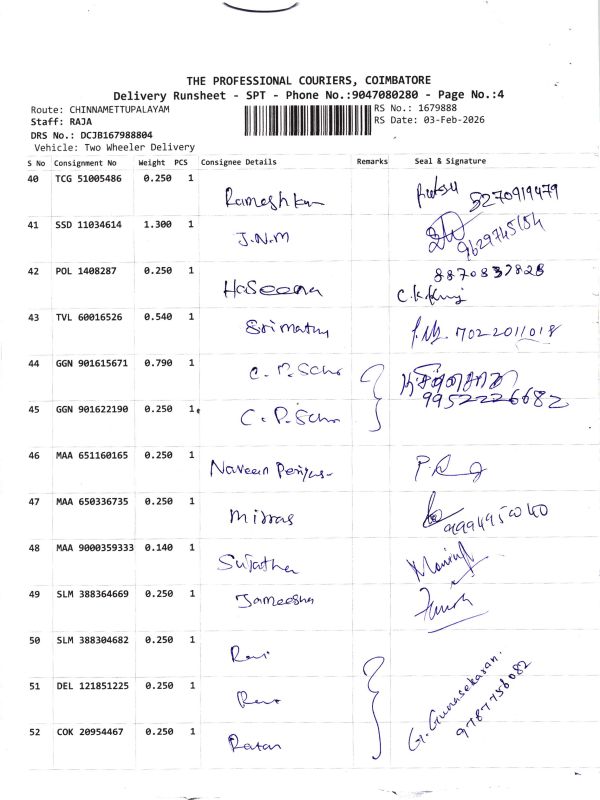 THE PROFESSIONAL COURIERS, COIMBATORE
Delivery Runsheet - SPT - Phone No.:9047080280 - Page No.:4
Route: CHINNAMETTUPALAYAM RS No.: 1679888
Staff: RAJA RS Date: 03-Feb-2026
DRS No.: DCJB167988804
Vehicle: Two Wheeler Delivery
S No Consignment No Weight PCS Consignee Details Remarks Seal & Signature
40 TCG 51005486 0.250 1 Rameshkum 8270919479
41 SSD 11034614 1.300 1 J.N.M 9629745154
42 POL 1408287 0.250 1 Haseena 8870837828
43 TVL 60016526 0.540 1 Srimathy 7022011018
44 GGN 901615671 0.790 1 C.P.Scho
45 GGN 901622190 0.250 1 C.P.Scho 9952226682
46 MAA 651160165 0.250 1 Naveen
47 MAA 650336735 0.250 1 9994950040
48 MAA 9000359333 0.140 1 Sujatha
49 SLM 388364669 0.250 1 Jameesha
50 SLM 388304682 0.250 1 Ravi
51 DEL 121851225 0.250 1 G. Gunasekaran.
52 COK 20954467 0.250 1 Ratan 9787756082